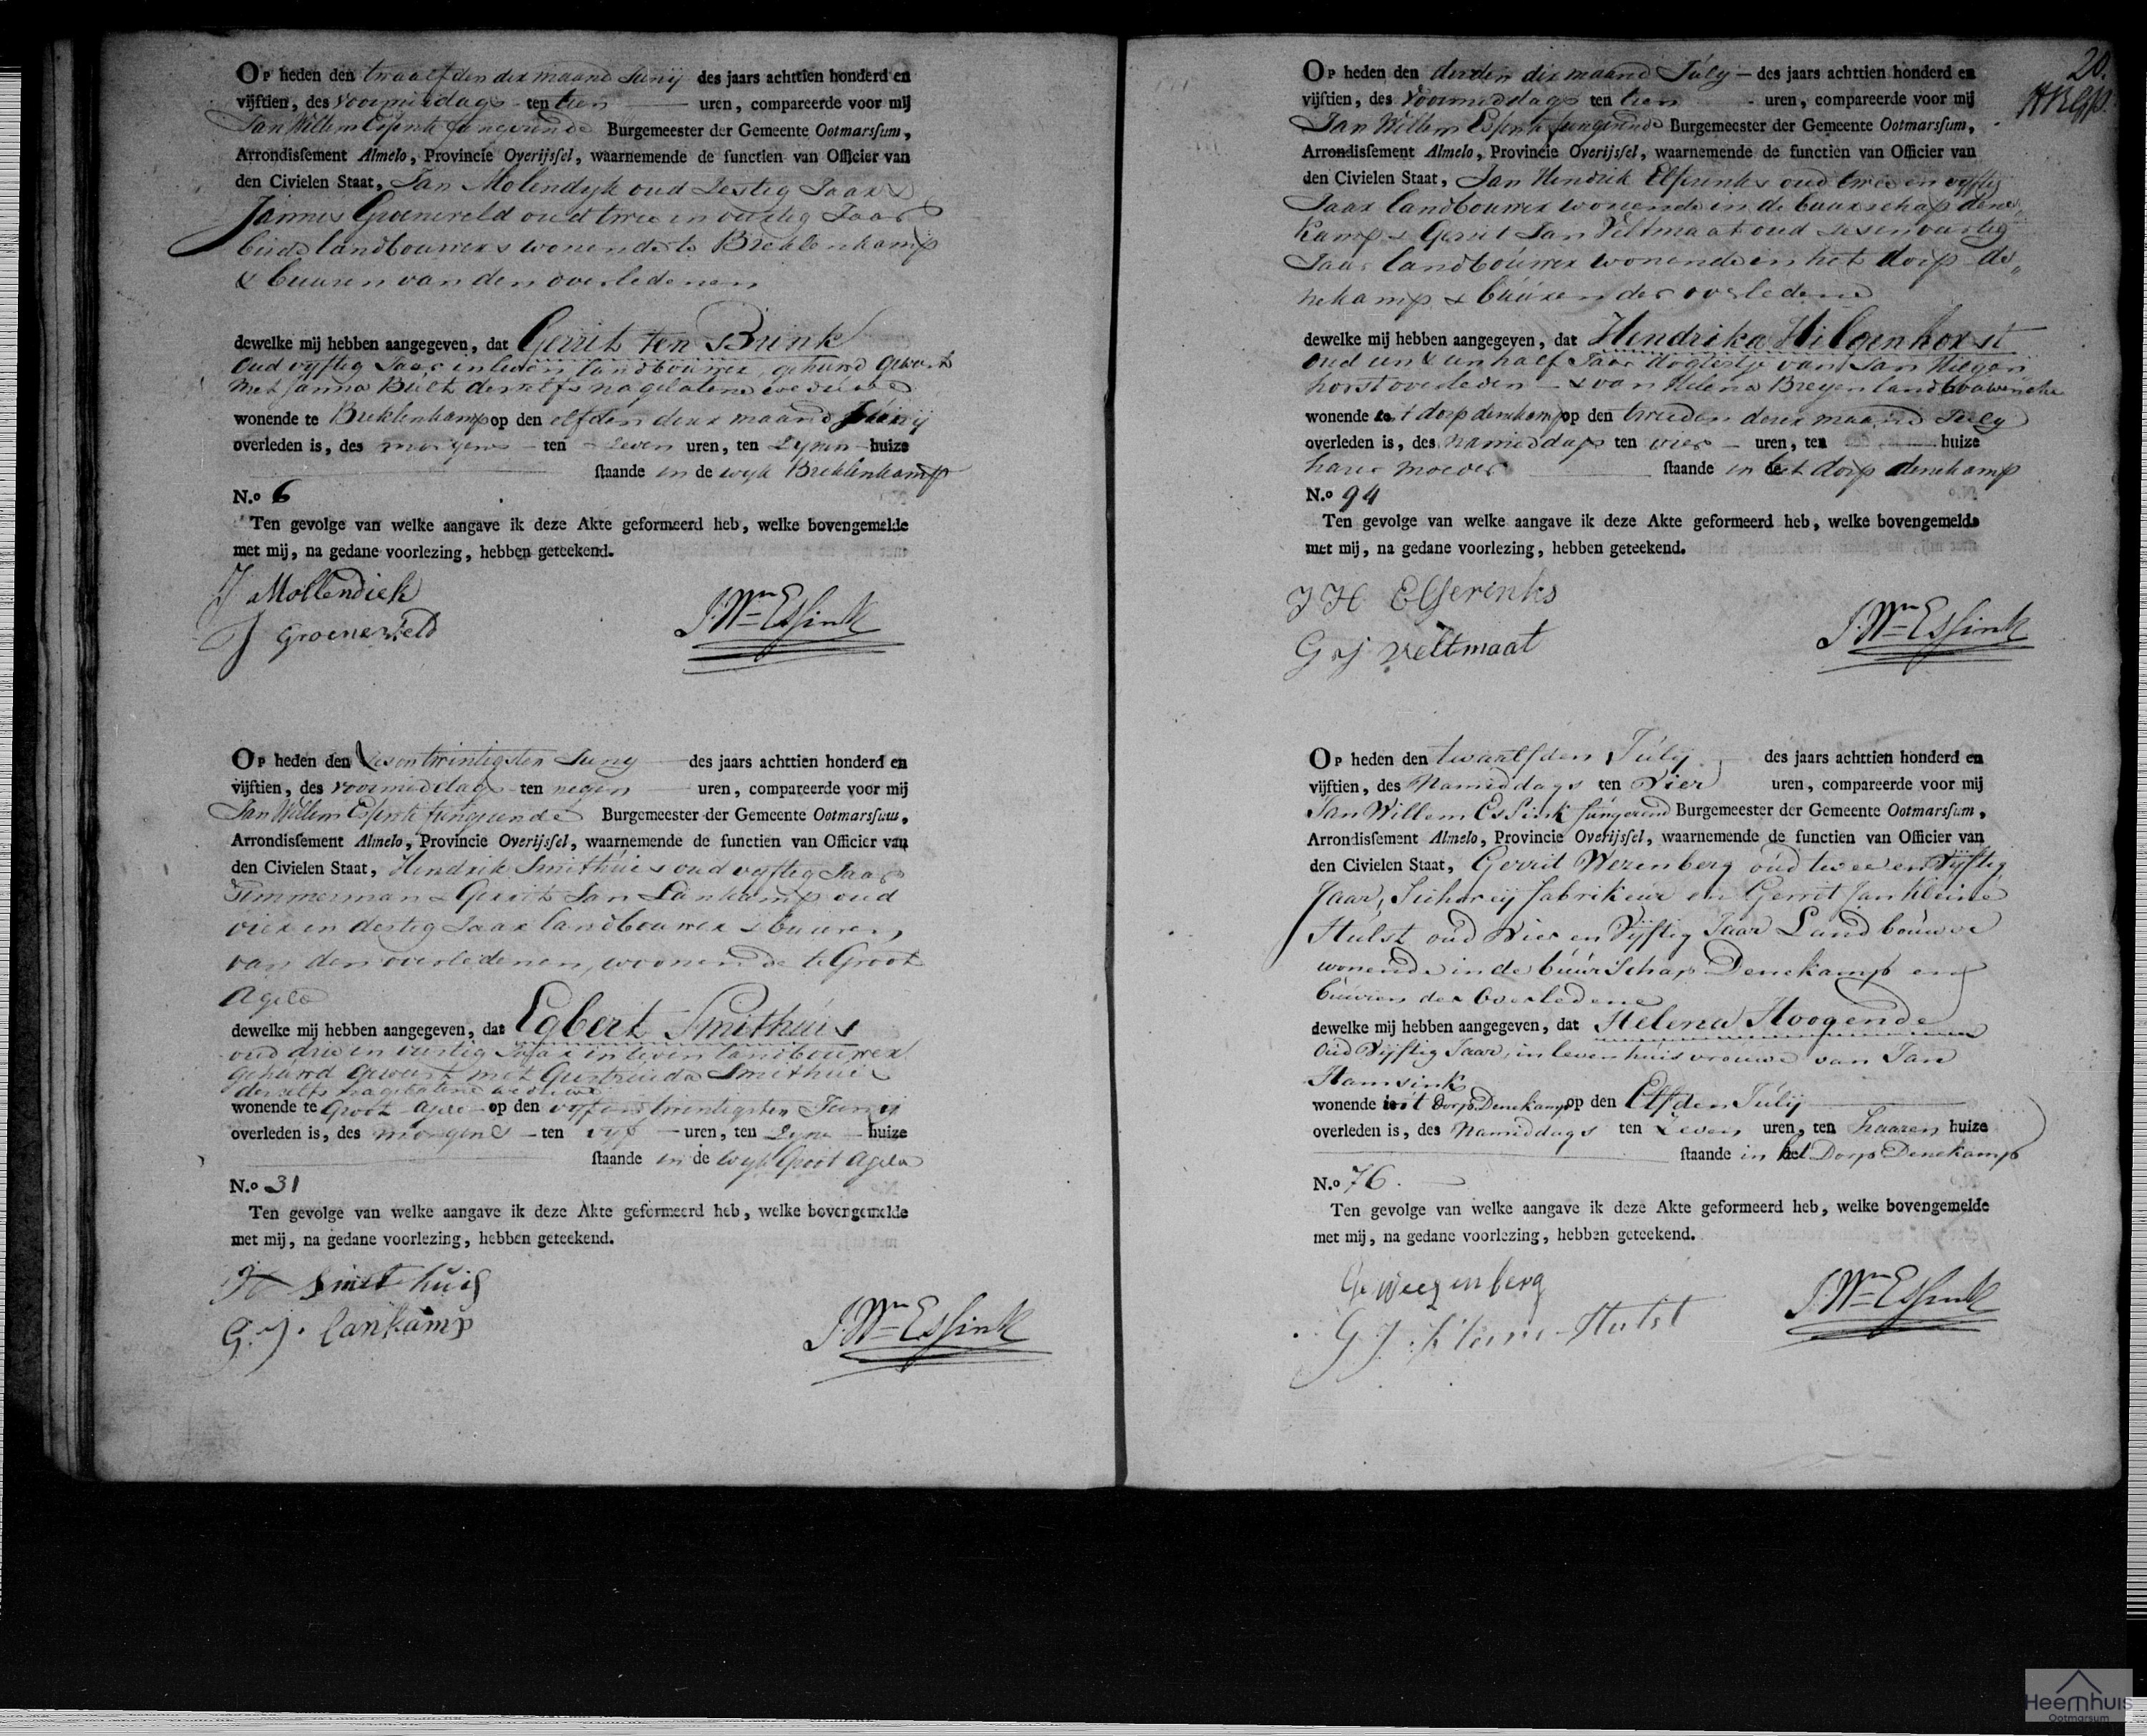 Op heden den twaalfden der maand Junij des jaars achttien honderd en
vijftien, des voormiddags ten tien uren, compareerde voor mij
Jan Willem Essink fungerende Burgemeester der Gemeente Ootmarssum,
Arrondissement Almelo, Provincie Overijssel, waarnemende de functien van Officier van
den Civielen Staat, Jan Molendijk oud Sestig Jaar &
Jannes Groeneveld oud twee en veertig Jaar
beide landbouwers wonende te Breklenkamp
& buuren van den overledenen
dewelke mij hebben aangegeven, dat Gerrit ten Brink
oud vyftig Jaar in leven landbouwer, gehuwd geweest
met Janna Bult deszelfs nagelatene weduwe
wonende te Breklenkamp op den elfden dezer maand Junij
overleden is, des morgens ten zeven uren, ten Zynen huize
staande in de wyk Breklenkamp
N.o 6
Ten gevolge van welke aangave ik deze Akte geformeerd heb, welke bovengemelde
met mij, na gedane voorlezing, hebben geteekend.
J Mollendiek
J Groeneveld
J. Wm Essink
Op heden den Sesentwintigsten Juny des jaars achttien honderd en
vijftien, des voormiddags ten negen uren, compareerde voor mij
Jan Willem Essink fungerende Burgemeester der Gemeente Ootmarssum,
Arrondissement Almelo, Provincie Overijssel, waarnemende de functien van Officier van
den Civielen Staat, Hendrik Smithuis oud vyftig Jaar
Timmerman & Gerrit Jan Lankamp oud
vier en dertig Jaar landbouwer & buuren,
van den overledenen, woonende te Groot
Agelo
dewelke mij hebben aangegeven, dat Egbert Smithuis
oud drie en veertig Jaar in leven landbouwer
gehuwd geweest met Geertruida Smithuis
deszelfs nagelatene weduwe
wonende te Groot Agelo op den vyfentwintigsten Junij
overleden is, des morgens ten vyf uren, ten Zyne huize
staande in de wyk Groot Agelo
N.o 31
Ten gevolge van welke aangave ik deze Akte geformeerd heb, welke bovengemelde
met mij, na gedane voorlezing, hebben geteekend.
H Smithuis
G. J. Lankamp
J. Wm Essink
20.
Op heden den derden der maand July des jaars achttien honderd en
vijftien, des Voormiddags ten tien uren, compareerde voor mij
Jan Willem Essink fungerende Burgemeester der Gemeente Ootmarssum,
Arrondissement Almelo, Provincie Overijssel, waarnemende de functien van Officier van
den Civielen Staat, Jan Hendrik Elferinks oud twee en vyftig
Jaar landbouwer wonende in de buurschap dene„
kamp & Gerrit Jan Veltmaat oud Sesenveertig
Jaar landbouwer wonende in het dorp de„
nekamp & buuren der overledene
dewelke mij hebben aangegeven, dat Hendrika Hilgenhorst
oud een & een half Jaar dogtertje van Jan Hilgen
horst overleden & van Helena Breyen landbouwersche
wonende te 't dorp denekamp op den tweeden dezer maand July
overleden is, des namiddags ten vier uren, ten huize
harer moeder staande in het dorp denekamp
N.o 94
Ten gevolge van welke aangave ik deze Akte geformeerd heb, welke bovengemelde
met mij, na gedane voorlezing, hebben geteekend.
J H Elferinks
G J Veltmaat
J. Wm Essink
Op heden den twaalfden Júlij des jaars achttien honderd en
vijftien, des Namiddags ten Vier uren, compareerde voor mij
Jan Willem Essink fúngerend Burgemeester der Gemeente Ootmarssum,
Arrondissement Almelo, Provincie Overijssel, waarnemende de functien van Officier van
den Civielen Staat, Gerrit Wezenberg oúd twee en Vijftig
Jaar, Sichorij fabrikeúr en Gerrit Jan Kleine
Húlst oúd Vier en Vijftig Jaar Landboúwer
wonende in de búúrschap Denekamp en
búúren der Overledene
dewelke mij hebben aangegeven, dat Helena Hoogende
Oúd Vijftig Jaar, in leven húisvroúwe van Jan
Hamsink
wonende in 't Dorp Denekamp op den Elfden Júlij
overleden is, des Namiddags ten Zeven uren, ten haaren huize
staande in het Dorp Denekamp
N.o 76.
Ten gevolge van welke aangave ik deze Akte geformeerd heb, welke bovengemelde
met mij, na gedane voorlezing, hebben geteekend.
G Weezenberg
G J Kleine Hulst
J. Wm Essink
Heemhuis
Ootmarsum